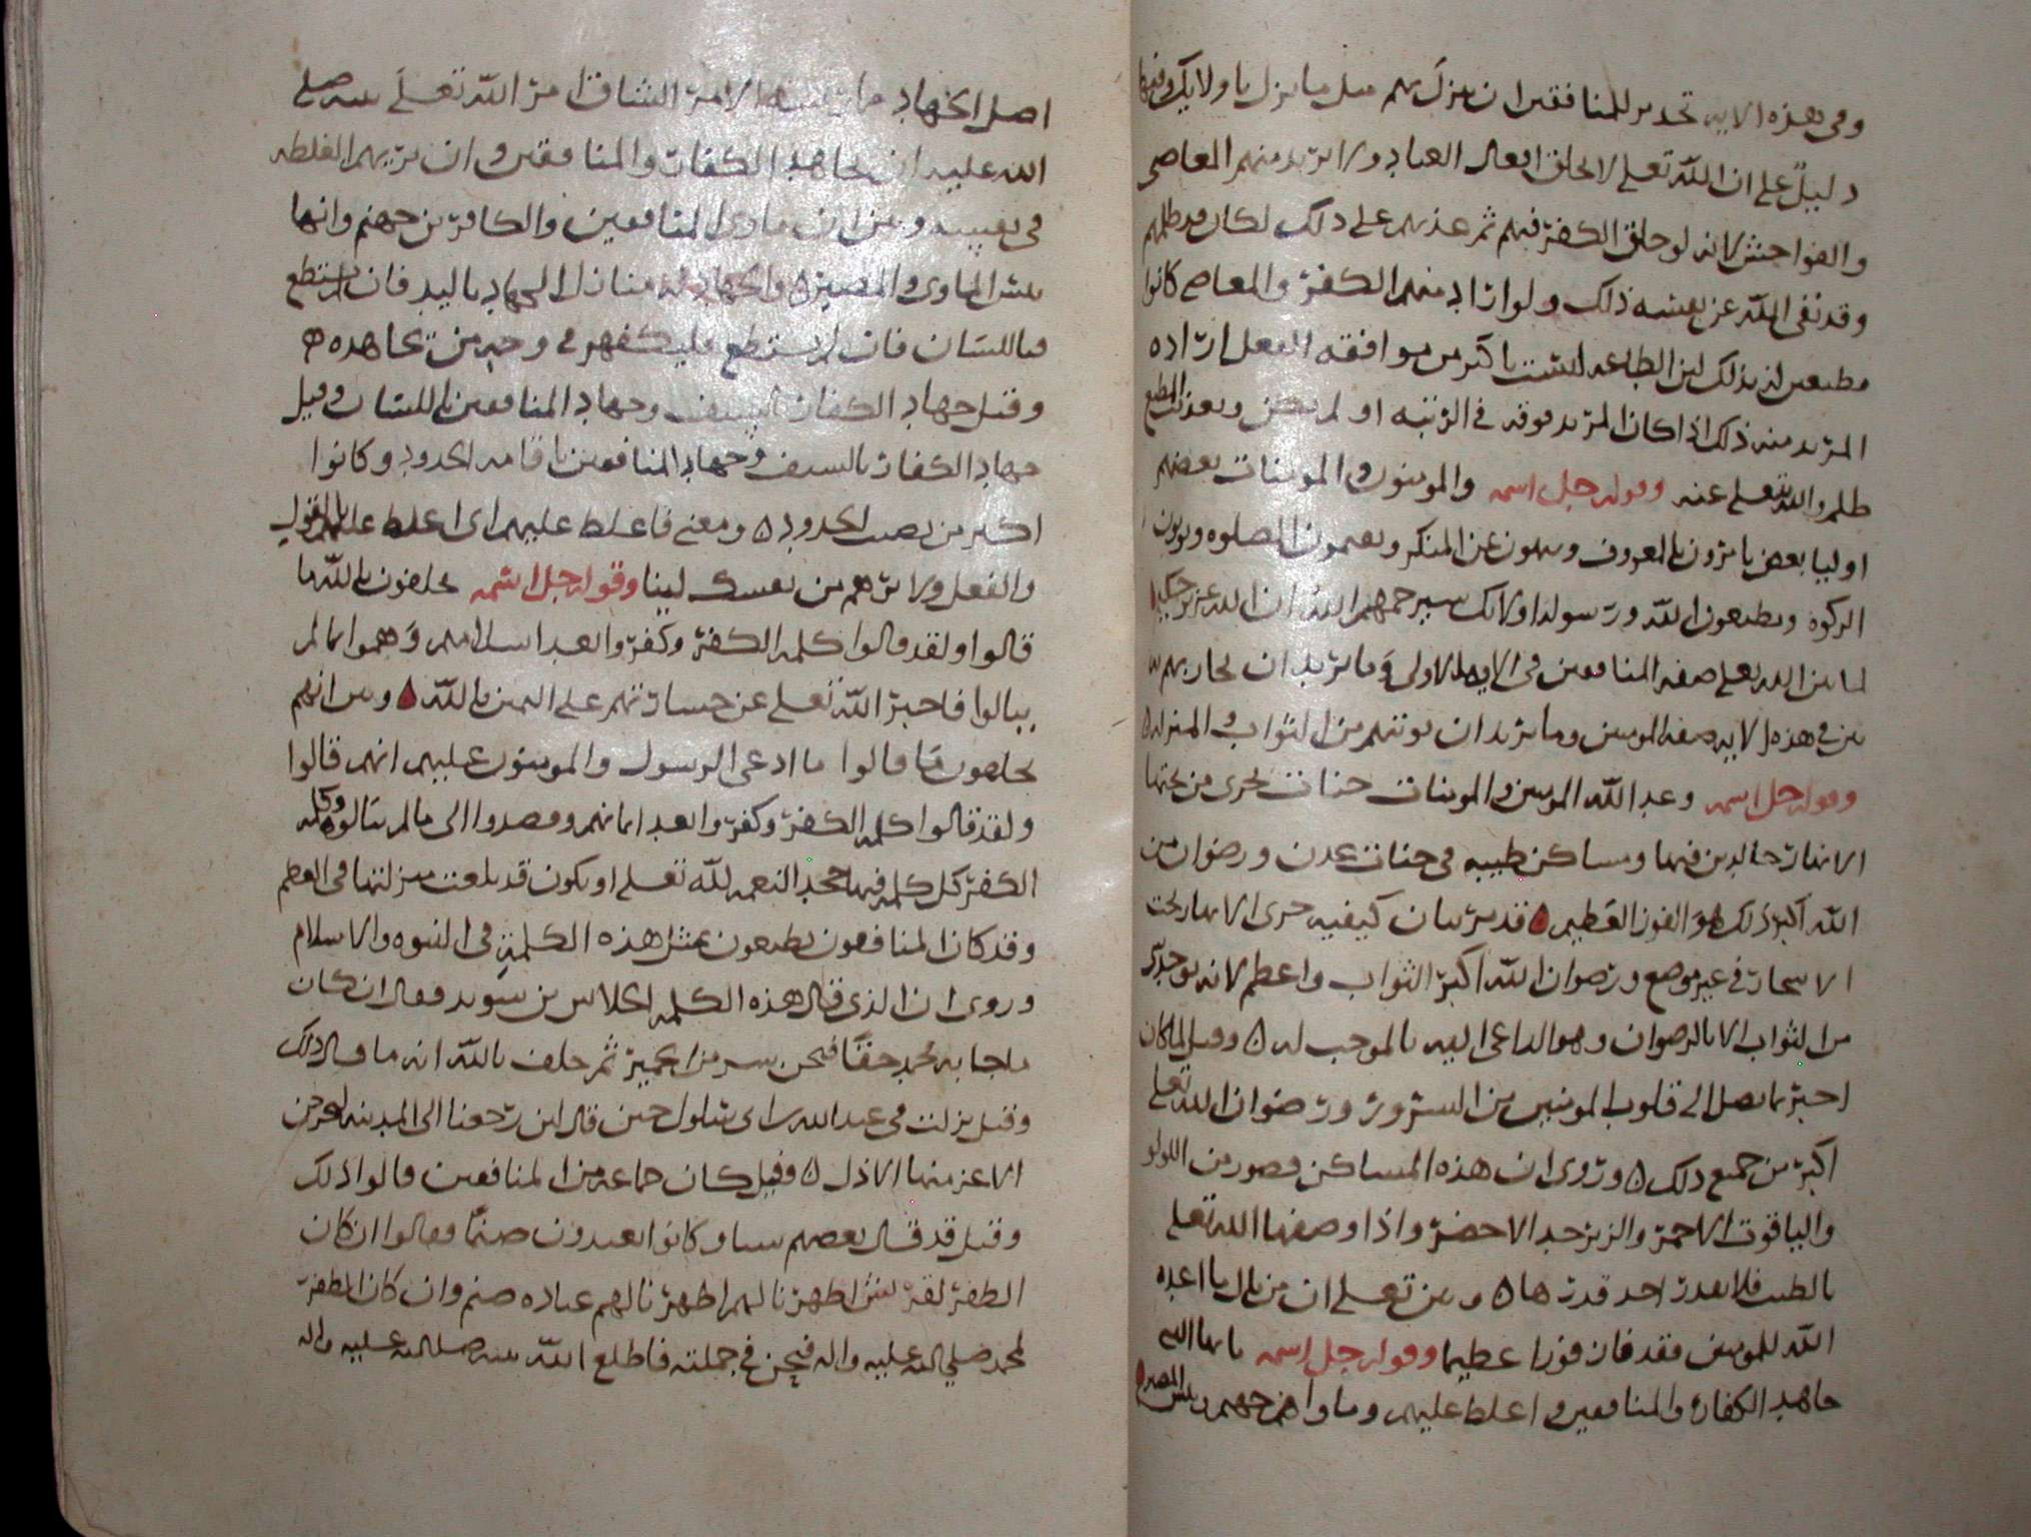 وفي هذه الايه تحدير للمنافقين ان ينزل بهم مثل ما نزل باولايك وفيها
دليل على ان الله تعلى لا يخلق افعال العباد ولا يريد منهم المعاصي
والفواحش لانه لو خلق الكفر فيهم ثم عذبهم على ذلك لكان قد ظلمهم
وقد نفى الله عن نفسه ذلك ولو اراد منهم الكفر والمعاصي كانوا
مطيعين له بذلك لان الطاعه ليست باكثر من موافقه الفعل اراده
المريد منه ذلك اذا كان المريد فوقه في الرتبه او لم يكن وتعذيب المطيع
ظلم والله يتعلى عنه وقوله جل اسمه والمومنون والمومنات بعضهم
اوليا بعض يامرون بالمعروف وينهون عن المنكر ويقيمون الصلوه ويوتون
الزكوه ويطيعون الله ورسوله اولايك سيرحمهم الله ان الله عزيز حكيم
لما بين الله تعلى صفه المنافقين في الايه الاولى وما يريد ان يجازيهم به
بين في هذه الايه صفه المومنين وما يريد ان يوتيهم من الثواب والمنزله
وقوله جل اسمه وعد الله المومنين والمومنات جنات تجري من تحتها
الانهار خالدين فيها ومساكن طيبه في جنات عدن ورضوان من
الله اكبر ذلك هو الفوز العظيم قد مر بيان كيفيه جري الانهار تحت
الاشجار في غير موضع ورضوان الله اكبر الثواب واعظم لانه يوجد كل
من الثواب الا بالرضوان وهو الداعي اليه بالموجب له وقيل لما كان
اخبر بما يصل الى قلوب المومنين من السرور ورضوان الله تعلى
اكبر من جميع ذلك وروى ان هذه المساكن قصور من اللولو
والياقوت الاحمر والزبرجد الاخضر واذا وصفها الله تعلى
بالطيب فلا يقدر احد قدرها وبين تعلى ان من نال ما اعده
الله للمومنين فقد فاز فوزا عظيما وقوله جل اسمه يا ايها النبي
جاهد الكفار والمنافقين واغلظ عليهم وماواهم جهنم وبئس المصير
اصل الجهاد الامر الشاق امر الله تعلى نبيه صلى
الله عليه ان يجاهد الكفار والمنافقين وان يريهم الغلظه
في نفسه وبين ان ماوى المنافقين والكافرين جهنم وانها
بئس الماوى والمصير والجهاد له منازل الجهاد باليد فان لم يستطع
فباللسان فان لم يستطع فليكفهر في وجه من يجاهده
وقيل جهاد الكفار بالسيف وجهاد المنافقين باللسان وقيل
جهاد الكفار بالسيف وجهاد المنافقين باقامه الحدود وكانوا
اكثر من يصيب الحدود ومعنى فاغلظ عليهم اي اغلظ عليهم بالقول
والفعل ولا ترهم من نفسك لينا وقوله جل اسمه يحلفون بالله ما
قالوا ولقد قالوا كلمه الكفر وكفروا بعد اسلامهم وهموا بما لم
ينالوا فاخبر الله تعلى عن جسارتهم على اليمين بالله وبين انهم
يحلفون ما قالوا ما ادعى الرسول والمومنون عليهم انهم قالوا
ولقد قالوا كلمه الكفر وكفروا بعد ايمانهم وقصدوا الى ما لم ينالوه وكلمه
الكفر كل كلمه فيها جحد النعمه لله تعلى او يكون قد بلغت منزلتها في العظم
وقد كان المنافقون يطعنون بمثل هذه الكلمة في النبوه والاسلام
وروى ان الذي قال هذه الكلمه الجلاس بن سويد فقال ان كان
ما جا به محمد حقا فنحن شر من الحمير ثم حلف بالله انه ما قال ذلك
وقيل نزلت في عبد الله بن ابي سلول حين قال لين رجعنا الى المدينه ليخرجن
الاعز منها الاذل وقيل كان جماعه من المنافقين قالوا ذلك
وقيل قد قال بعضهم شيا وكانوا يعبدون صنما فقالوا ان كان
الظفر لقريش اظهرنا لهم اظهرنا لهم عباده صنم وان كان الظفر
لمحمد صلى الله عليه واله فنحن في جملته فاطلع الله نبيه صلى الله عليه واله